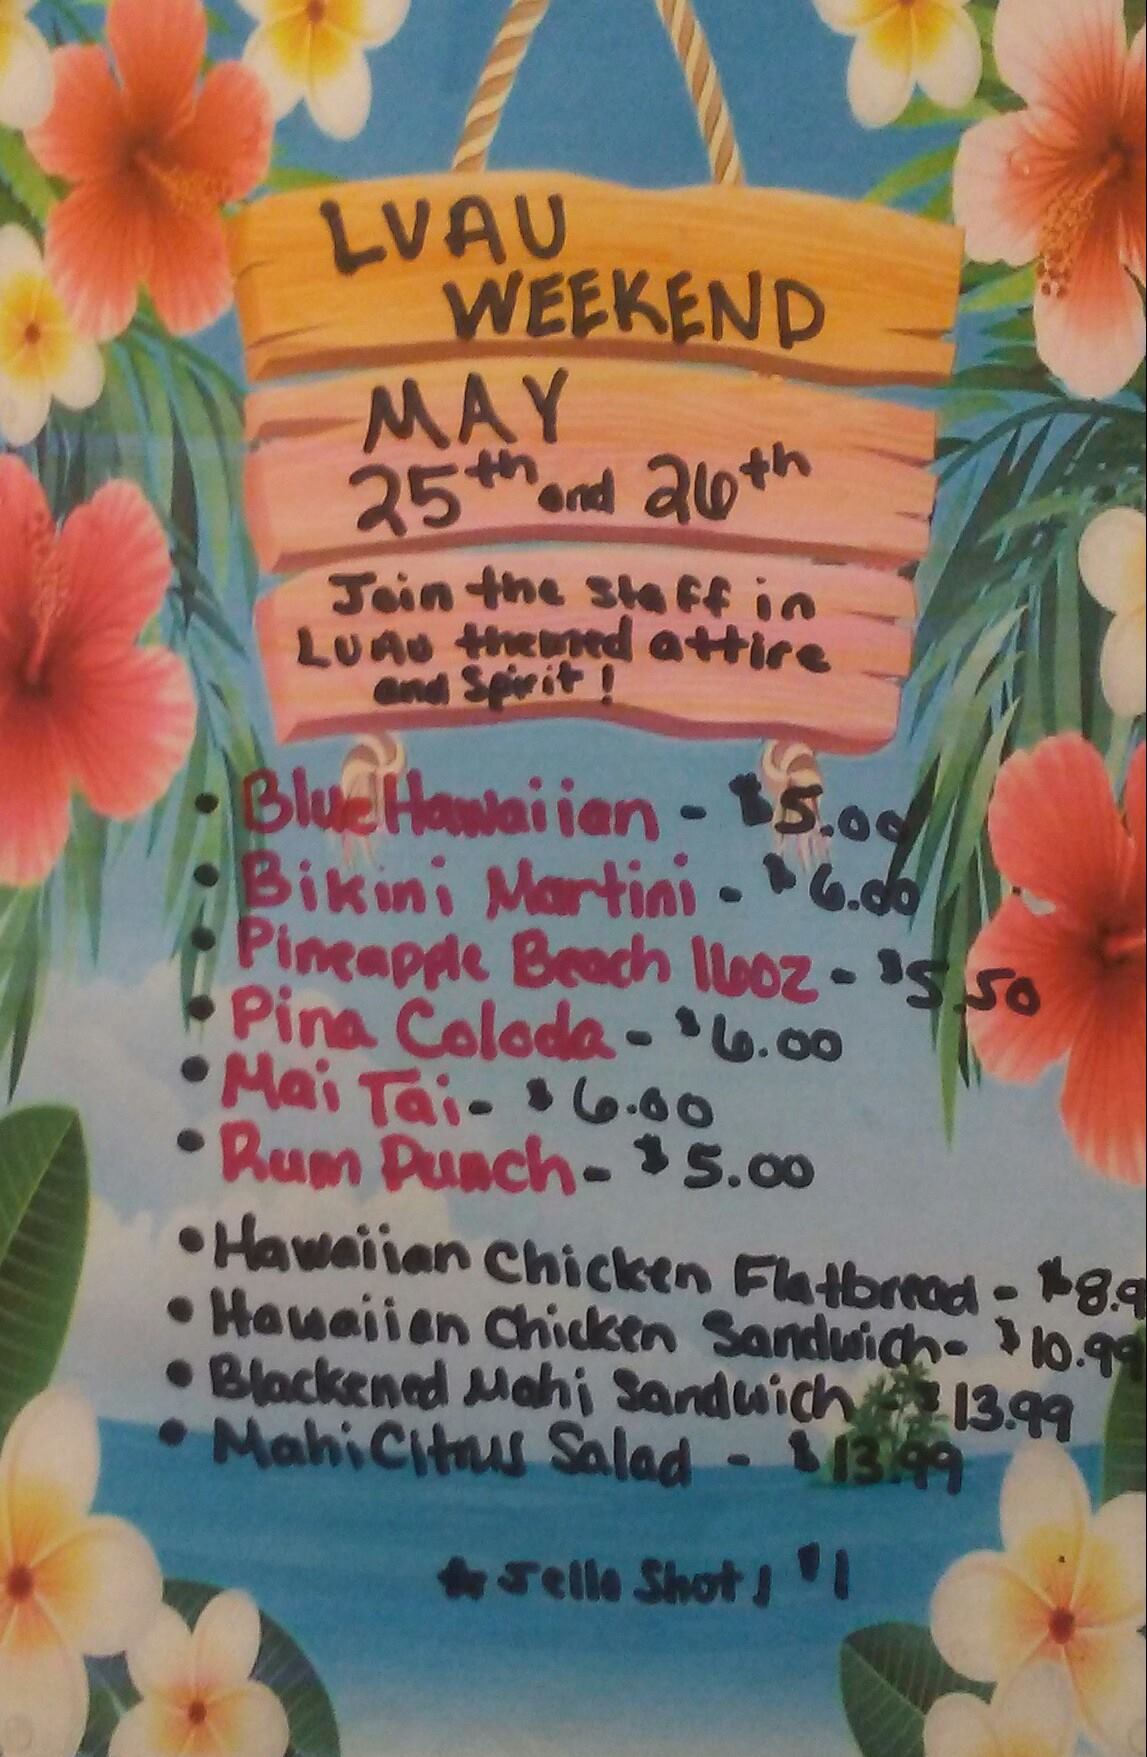 LUAU
WEEKEND
MAY
25th and 26th
Join the staff in
LUAU themed attire
and Spirit!
• Blue Hawaiian - $5.00
• Bikini Martini - $6.00
• Pineapple Beach 16oz - $5.50
• Pina Colada - $6.00
• Mai Tai - $6.00
• Rum Punch - $5.00
• Hawaiian Chicken Flatbread - $8.9
• Hawaiian Chicken Sandwich - $10.99
• Blackened Mahi Sandwich - $13.99
• Mahi Citrus Salad - $13.99
☆ Jello Shot! $1